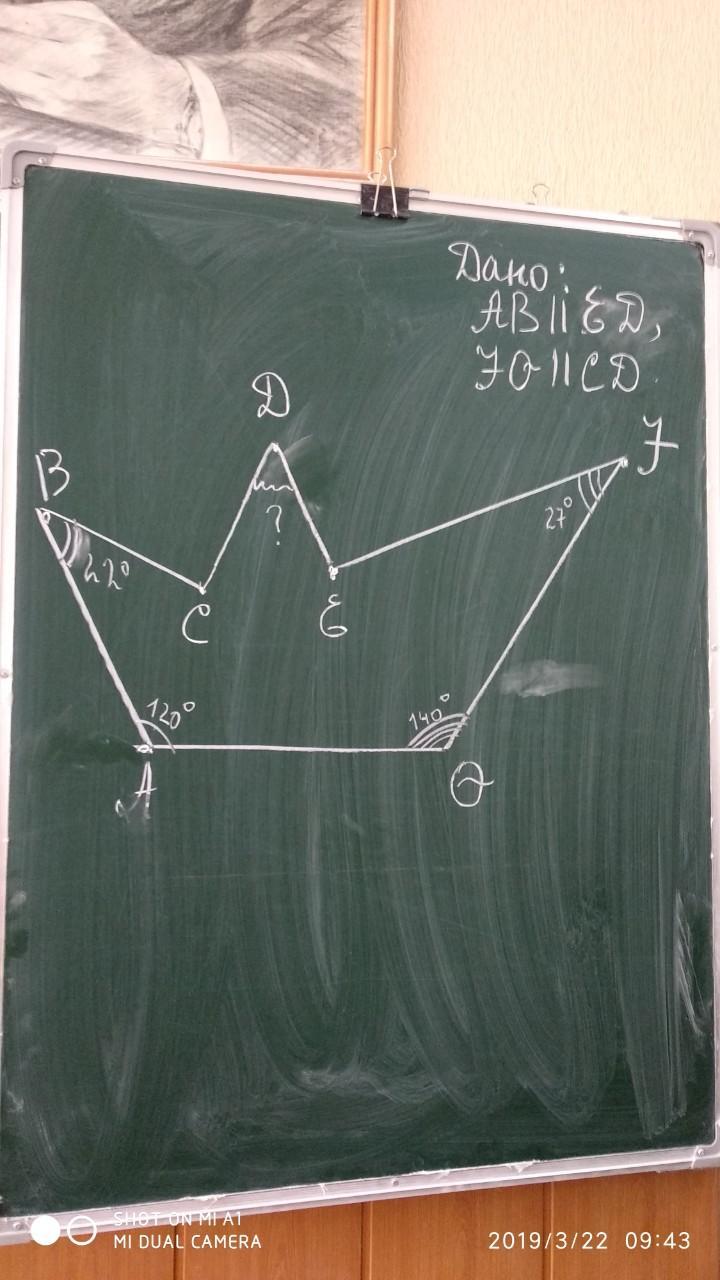 Дано:
AB || ED,
FO || CD.
D
B
F
?
27°
22°
C
E
120°
140°
A
O
SHOT ON MI A1
MI DUAL CAMERA
2019/3/22 09:43